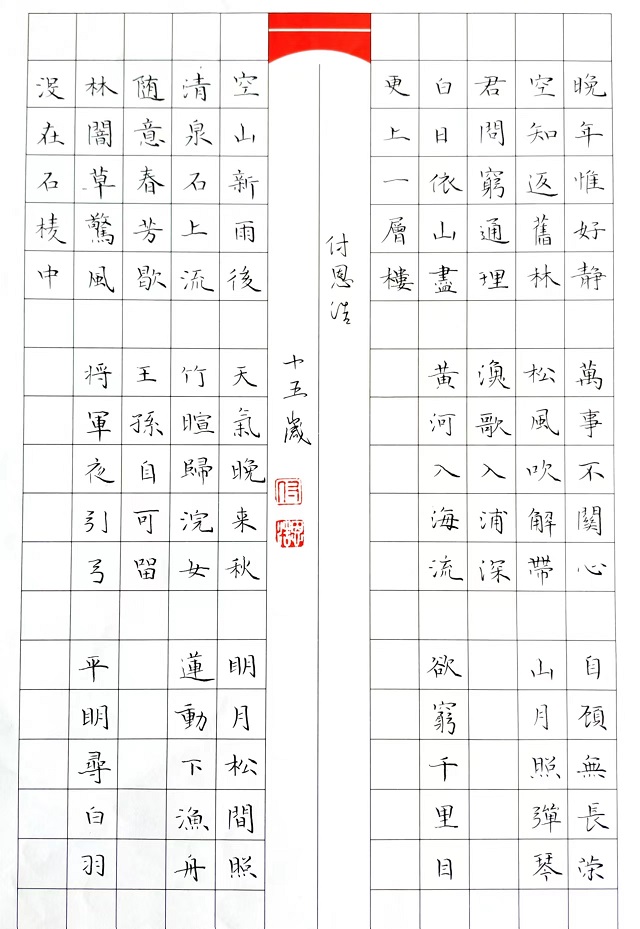 晚年惟好静 萬事不關心 自顾無長策
空知返舊林 松風吹解帶 山月照彈琴
君問窮通理 漁歌入浦深
白日依山盡 黃河入海流 欲窮千里目
更上一層樓
付恩浩
十五歲
空山新雨後 天氣晚来秋 明月松間照
清泉石上流 竹暄歸浣女 蓮動下漁舟
随意春芳歇 王孫自可留
林闇草驚風 将軍夜引弓 平明尋白羽
没在石棱中